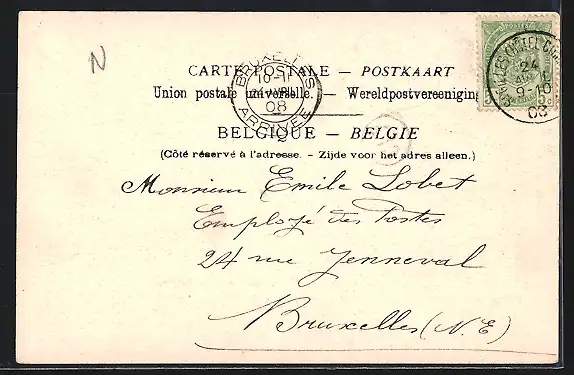 N
CARTE POSTALE — POSTKAART
Union postale universelle. — Wereldpostvereeniging
BELGIQUE - BELGIE
(Côté réservé à l'adresse. - Zijde voor het adres alleen.)
BRUXELLES
10-11
24 AVRIL
08
ARRIVÉE
24
9-10
08
Monsieur Emile Lobet
Employé des Postes
24 rue Jenneval
Bruxelles (N.E)